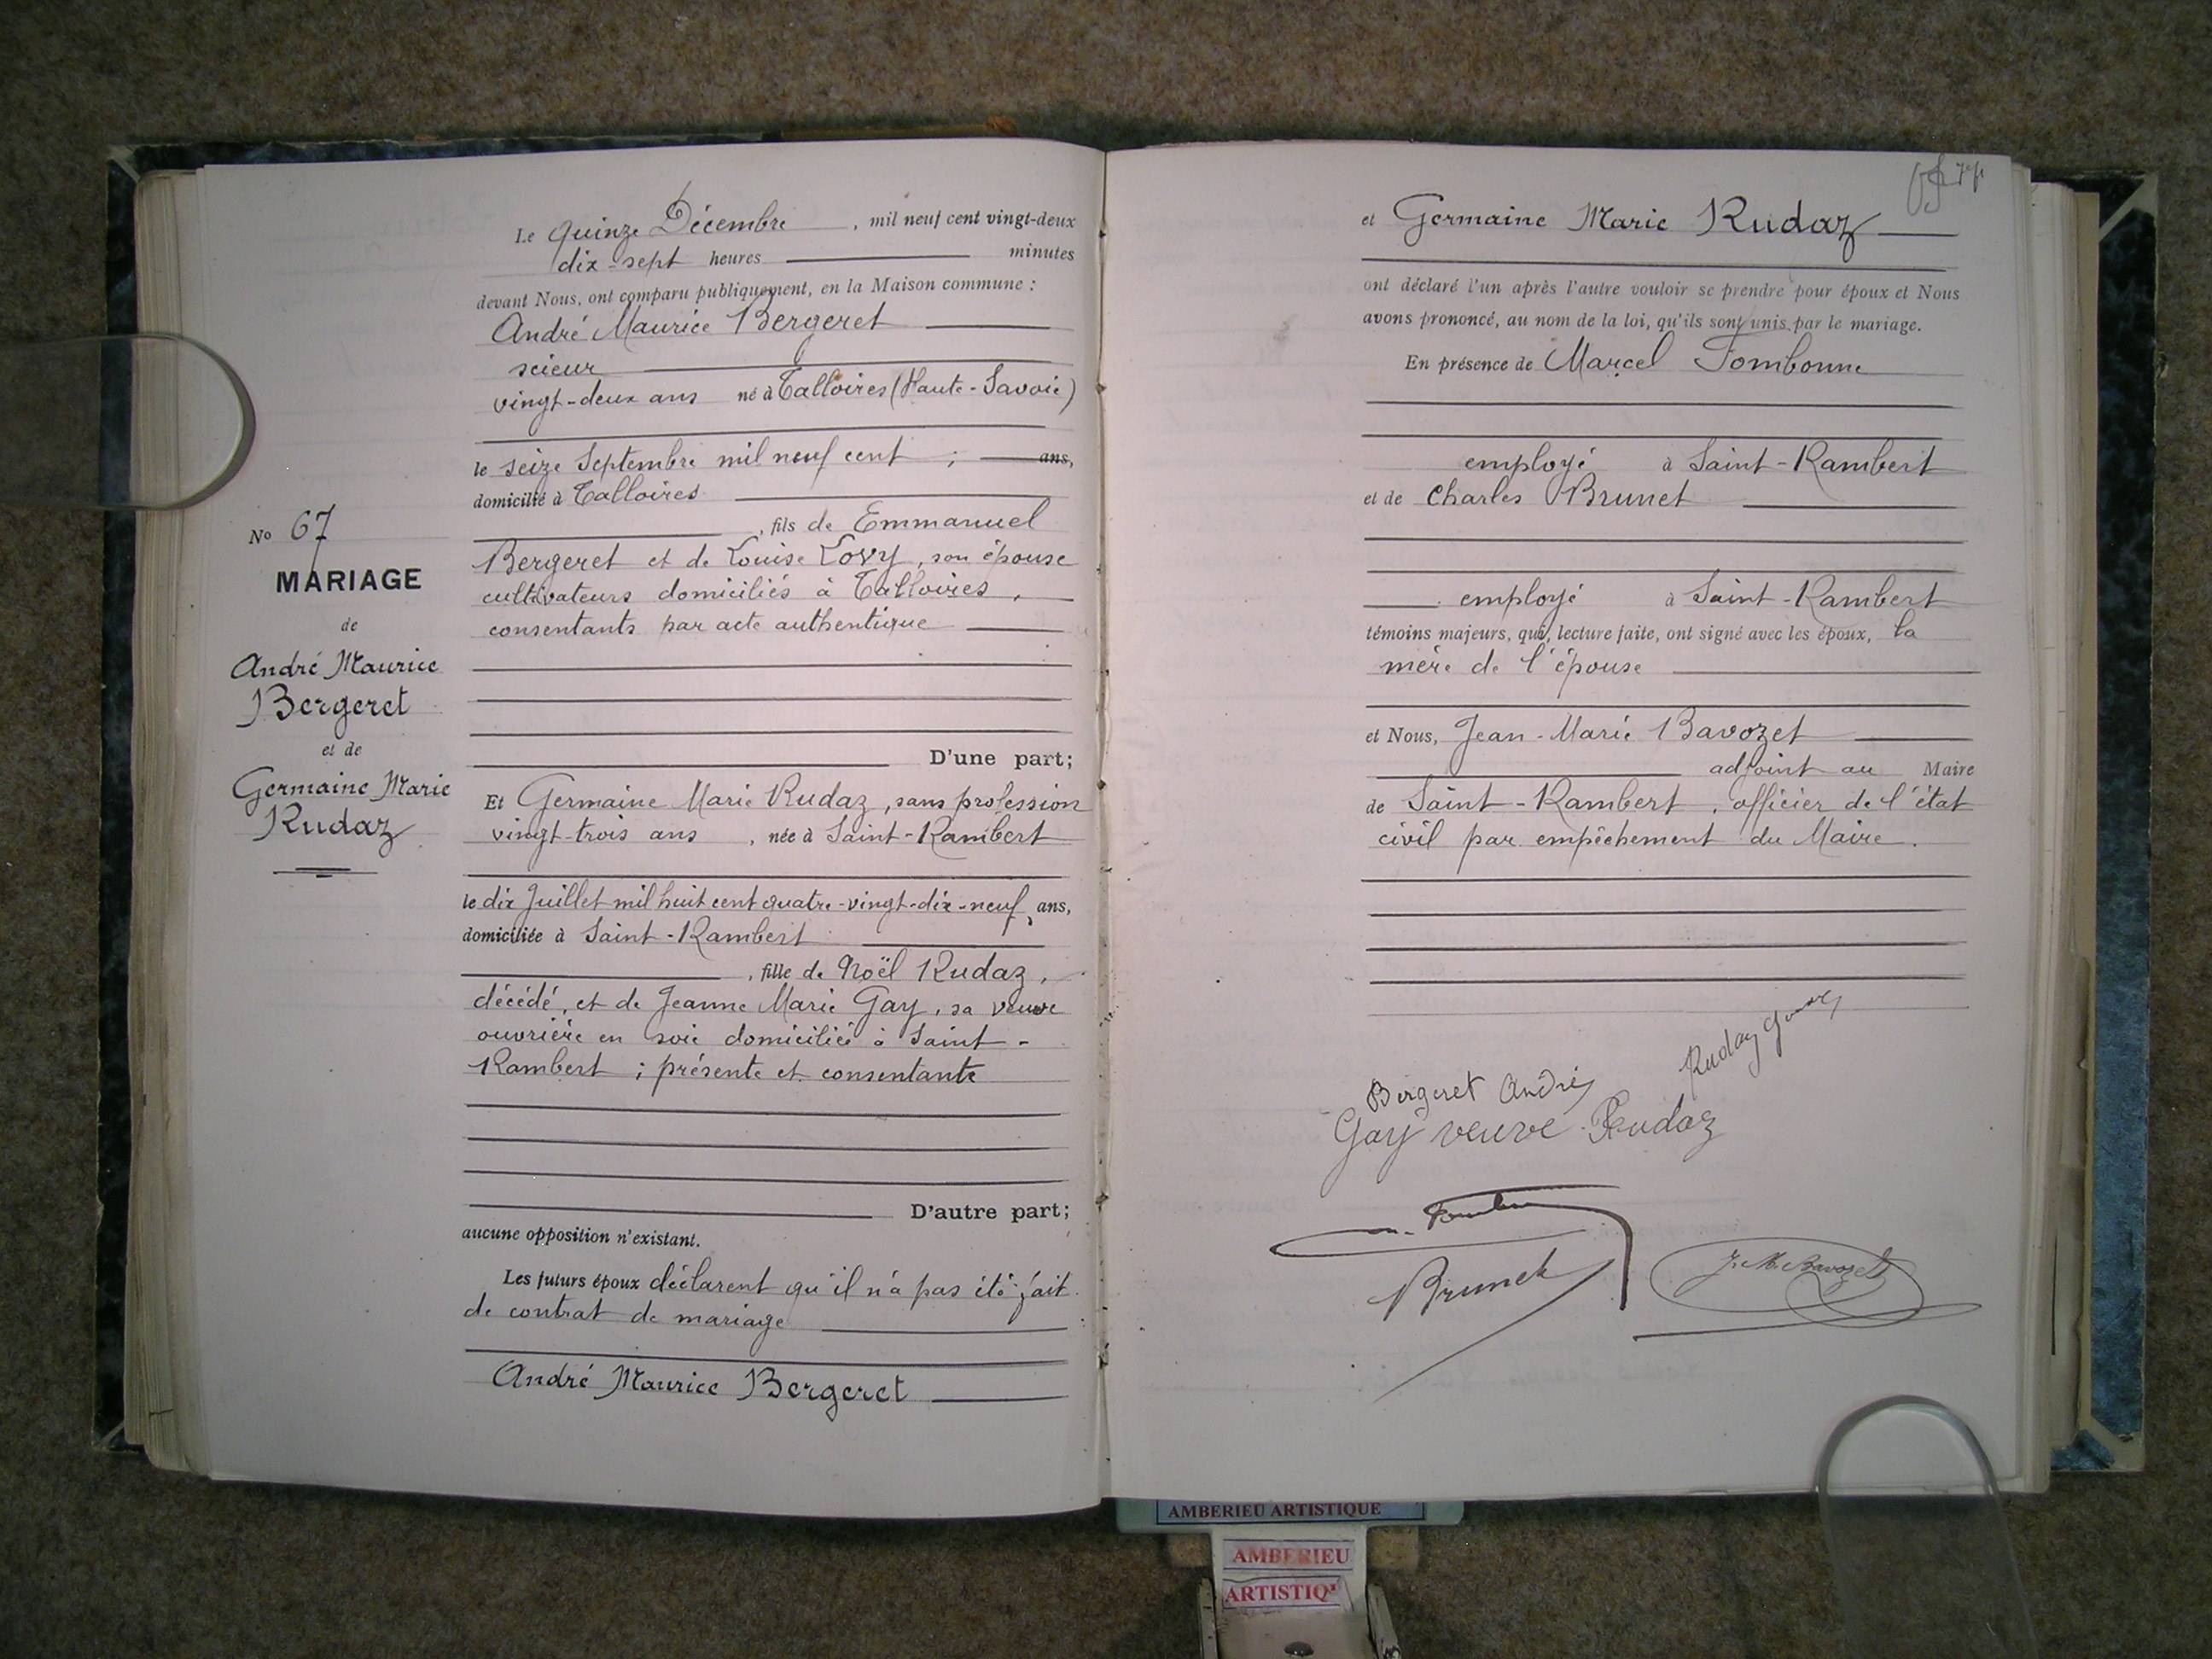 Le quinze Décembre , mil neuf cent vingt-deux
dix-sept heures minutes
devant Nous, ont comparu publiquement, en la Maison commune :
André Maurice Bergeret
scieur
vingt-deux ans né à Talloires (Haute-Savoie)
le seize Septembre mil neuf cent ; ans,
domicilié à Talloires
, fils de Emmanuel
Bergeret et de Louise Lovy, son épouse
cultivateurs domiciliés à Talloires,
consentants par acte authentique
No 67
MARIAGE
de
André Maurice
Bergeret
et de
Germaine Marie
Rudaz
D'une part;
Et Germaine Marie Rudaz, sans profession
vingt-trois ans , née à Saint-Rambert
le dix Juillet mil huit cent quatre-vingt-dix-neuf, ans,
domiciliée à Saint-Rambert
, fille de Noël Rudaz,
décédé, et de Jeanne Marie Gay, sa veuve
ouvrière en soie domiciliée à Saint-
Rambert ; présente et consentante
D'autre part;
aucune opposition n'existant.
Les futurs époux déclarent qu'il n'a pas été fait
de contrat de mariage
André Maurice Bergeret
et Germaine Marie Rudaz
ont déclaré l'un après l'autre vouloir se prendre pour époux et Nous
avons prononcé, au nom de la loi, qu'ils sont unis par le mariage.
En présence de Marcel Fombonne
employé à Saint-Rambert
et de Charles Brunet
employé à Saint-Rambert
témoins majeurs, qui, lecture faite, ont signé avec les époux, la
mère de l'épouse
et Nous, Jean-Marie Bavozet
adjoint au Maire
de Saint-Rambert, officier de l'état
civil par empêchement du Maire.
Rudaz
Bergeret André
Gay veuve Rudaz
Brunet
J. M. Bavozet
AMBERIEU ARTISTIQUE
AMBERIEU
ARTISTIQ